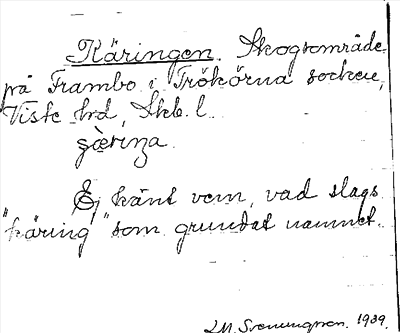 Käringen. Skogsområde
på Frambo i Trökörna socken,
Viste hd, Skb. l.
çæ̀rıŋa
Ej känt vem, vad slags
"käring" som grundat namnet.
J.M. Svenungsson. 1939.